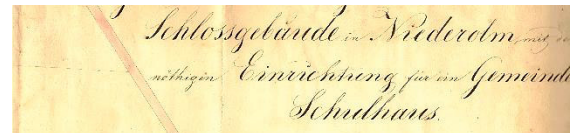 Schlossgebäude in Niederolm, mit der
nöthigen Einrichtung für ein Gemeinde
Schulhaus.